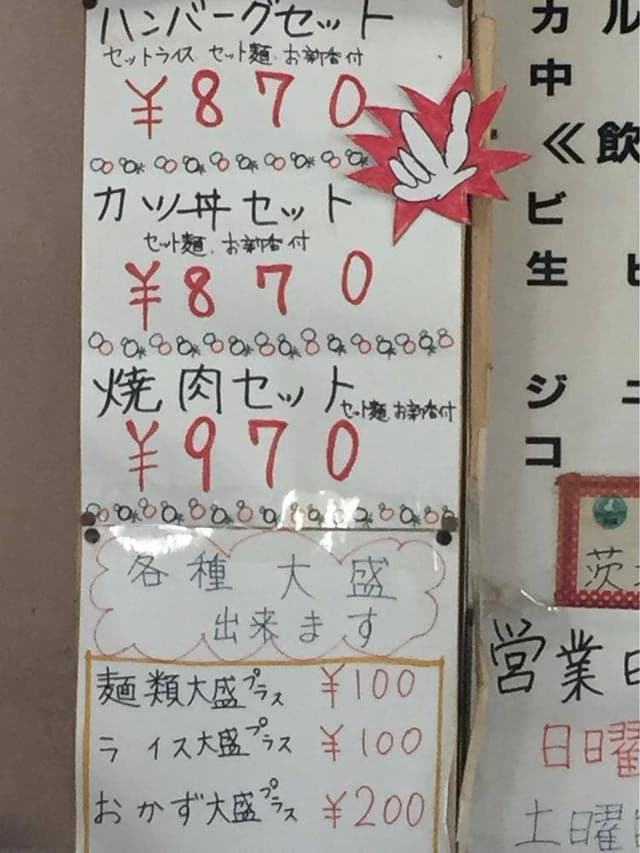 ハンバーグセット
セットライス セット麺、お新香付
¥870
カツ丼セット
セット麺、お新香付
¥870
焼肉セット
セット麺 お新香付
¥970
各種 大盛
出来ます
麺類大盛プラス ¥100
ライス大盛プラス ¥100
おかず大盛プラス ¥200
カ ル
中
≪飲
ビ
生 ビ
ジ ニ
コ
茨
営業日
日曜
土曜日